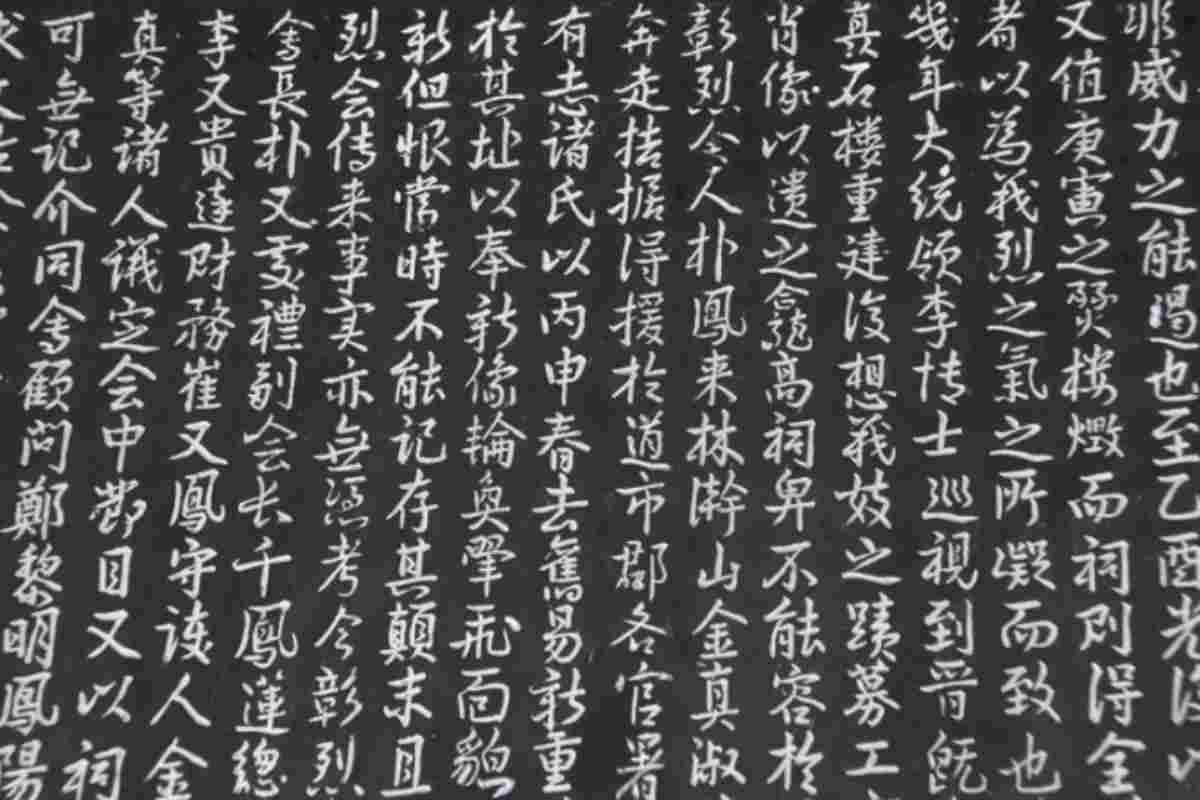 非威力之能遏也至乙酉光復
又值庚寅之燹火楼燬而祠則得全
者以為義烈之氣之所凝而致也
幾年大統領李博士巡視到晋既
真石楼重建後想義妓之蹟募工
肖像以遗之龕高祠卑不能容於
彰烈会人朴鳳来林游山金真淑
奔走拮据得援於道市郡各官署
有志諸氏以丙申春去舊易新重
於其址以奉新像輪奐翬飛面貌
新但恨當時不能記存其顛末且
烈会传来事实亦無憑考今彰烈
会長朴又雯禮副会长千鳳蓮總
李又貴達财務崔又鳳守該人金
真等諸人議定会中節目又以祠
可無記介同会顧問鄭黎明鳳陽
求文於余